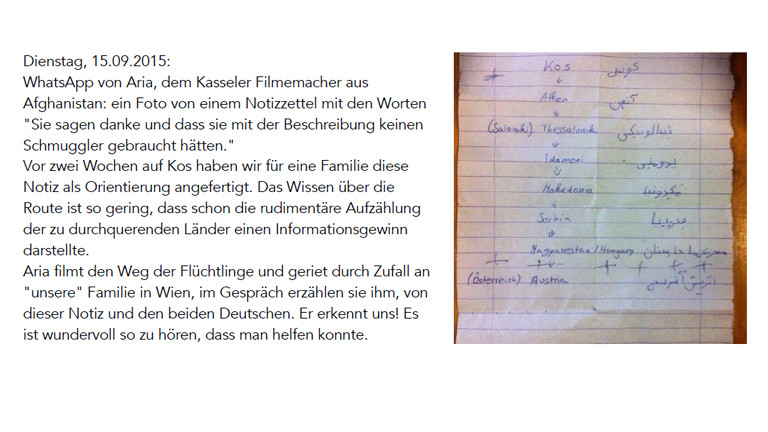 Dienstag, 15.09.2015:
WhatsApp von Aria, dem Kasseler Filmemacher aus
Afghanistan: ein Foto von einem Notizzettel mit den Worten
"Sie sagen danke und dass sie mit der Beschreibung keinen
Schmuggler gebraucht hätten."
Vor zwei Wochen auf Kos haben wir für eine Familie diese
Notiz als Orientierung angefertigt. Das Wissen über die
Route ist so gering, dass schon die rudimentäre Aufzählung
der zu durchquerenden Länder einen Informationsgewinn
darstellte.
Aria filmt den Weg der Flüchtlinge und geriet durch Zufall an
"unsere" Familie in Wien, im Gespräch erzählen sie ihm, von
dieser Notiz und den beiden Deutschen. Er erkennt uns! Es
ist wundervoll so zu hören, dass man helfen konnte.
Kos
Athen آتهن
(Saloniki) Thessaloniki
Idomeni
Makedonia
Serbia
Magyarestan / Hungary
(Österreich) Austria